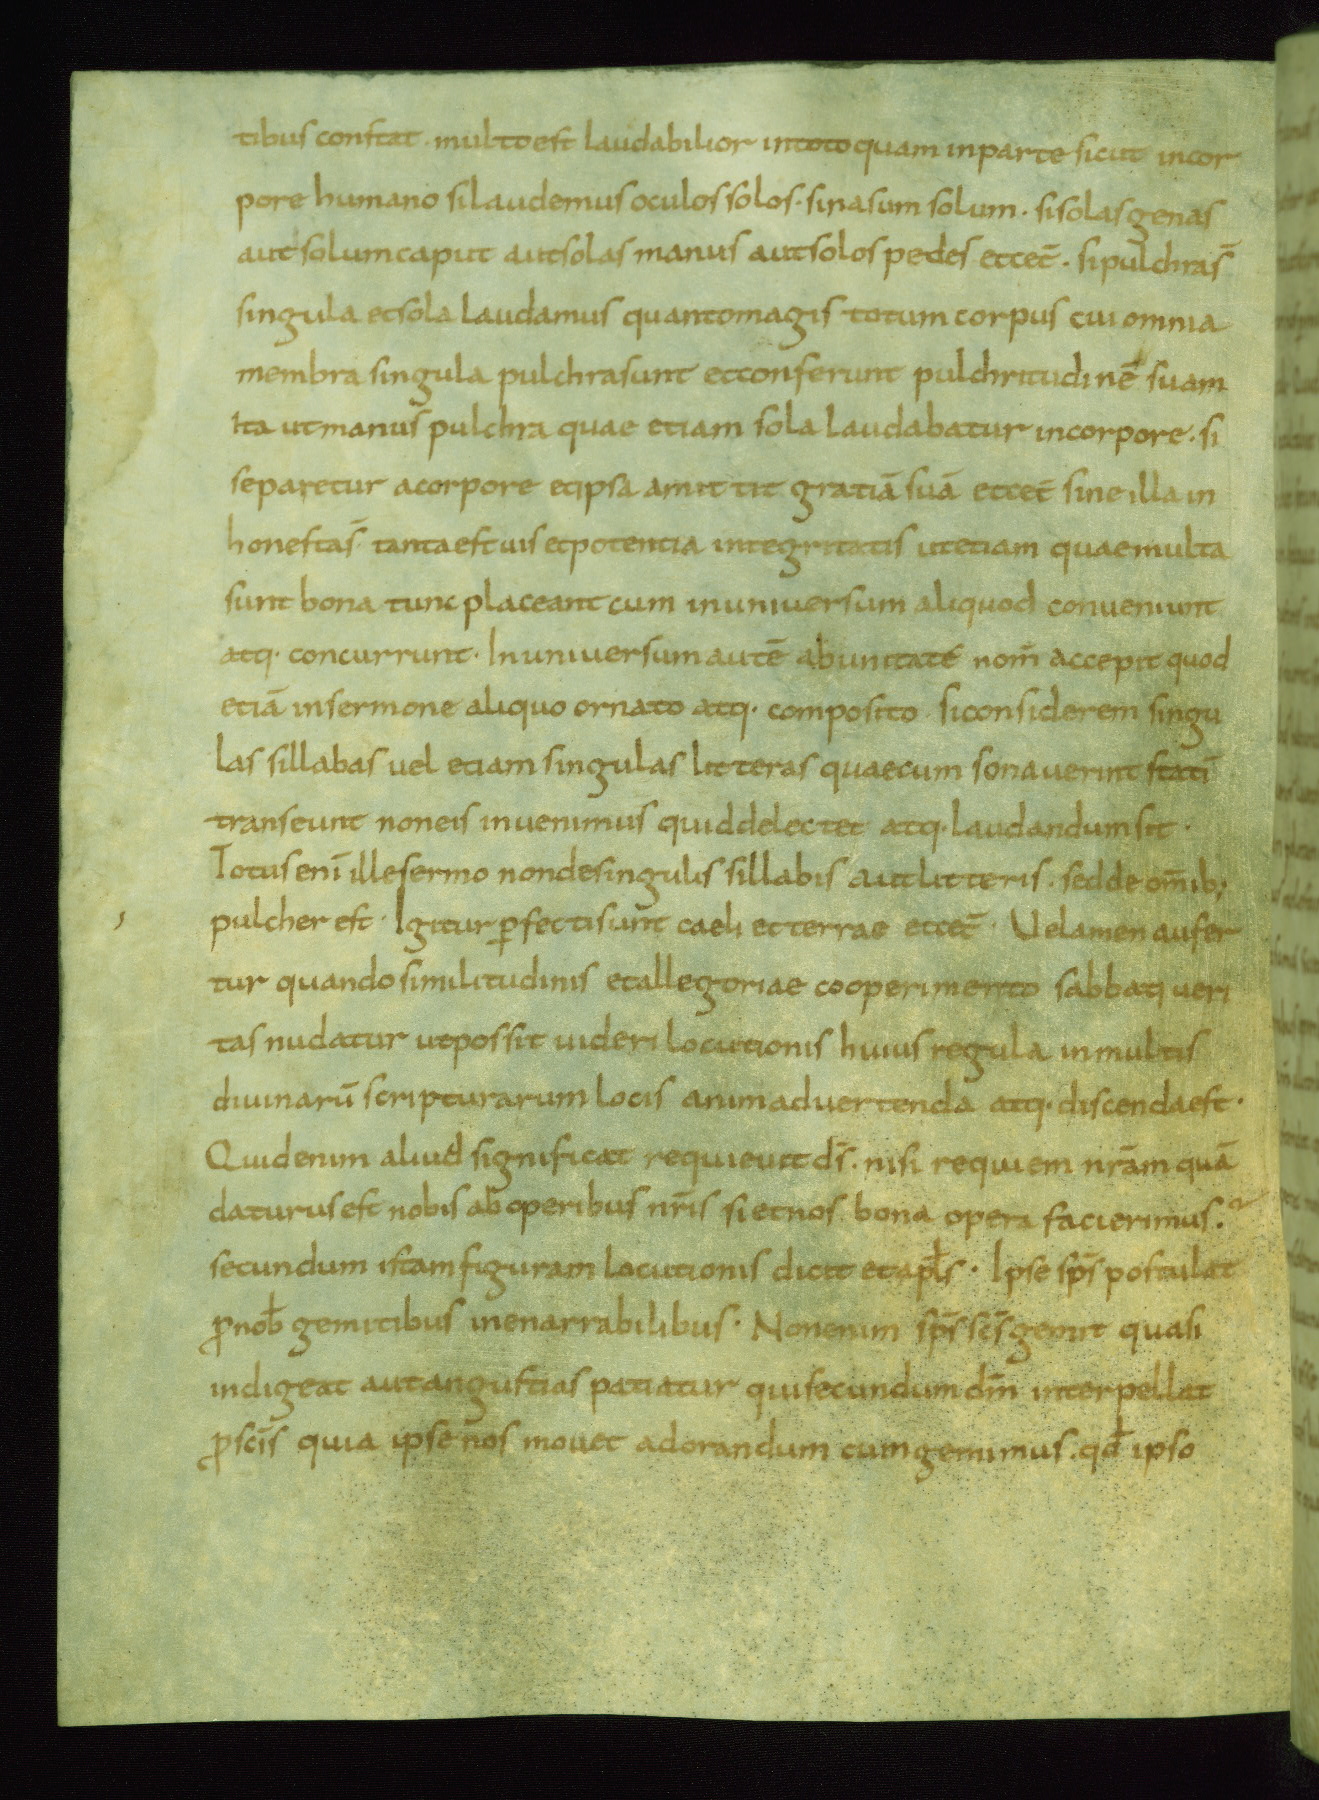 tibus constat · multo est laudabilior in toto quam in parte sicut incor
pore humano si laudemus oculos solos · si nasum solum · si solas genas
aut solum caput aut solas manus aut solos pedes et cet̄ · si pulchra s̄
singula et sola laudamus quanto magis totum corpus cui omnia
membra singula pulchra sunt et conferunt pulchritudinē suam
Ita ut manus pulchra quae etiam sola laudabatur in corpore · si
separetur a corpore et ipsa amittit gratiā suā et cet̄ sine illa in
honesta s̄ tanta est uis et potentia integritatis ut etiam quae multa
sunt bona tunc placeant cum in universum aliquod conveniunt
atq· concurrunt · In universum autē ab unitate nom̄ accepit quod
etiā in sermone aliquo ornato atq· composito si considerem singu
las sillabas uel etiam singulas litteras quae cum sonaverint statī
transeunt non eis invenimus quid delectet atq· laudandum sit ·
Totus enī ille sermo non de singulis sillabis aut litteris · sed de om̄ib;
pulcher est · Igitur ꝑfecti sunt caeli et terrae et cet̄ · Uelamen aufer
tur quando similitudinis et allegoriae cooperimento sabbati ueri
tas nudatur ut possit uideri locutionis huius regula in multis
diuinarū scripturarum locis animadvertenda atq· discenda est ·
Quid enim aliud significat requieuit ds̄ · nisi requiem nr̄am quā
daturus est nobis ab operibus nr̄is si et nos bona opera facierimus ·
secundum istam figuram locutionis dicit et apłs · Ipse sps̄ postulat
ꝓ nob̄ gemitibus inenarrabilibus · Non enim sps̄ scs̄ gemit quasi
indigeat aut angustias patiatur qui secundum dm̄ interpellat
ꝓ scīs quia ipse nos movet ad orandum cum gemimus · qđ ipso